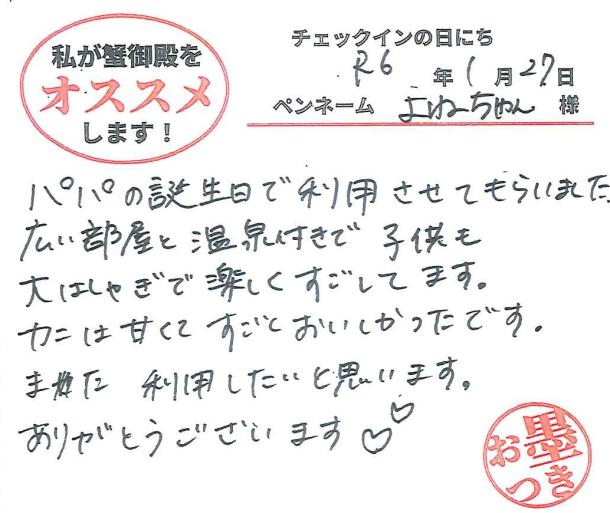 私が蟹御殿を
オススメ
します！
チェックインの日にち
R6年1月27日
ペンネーム よねーちゃん 様
パパの誕生日で利用させてもらいました
広い部屋と温泉付きで子供も
大はしゃぎで楽しくすごしてます。
カニは甘くてすごくおいしかったです。
また利用したいと思います。
ありがとうございます♡♡
お墨つき